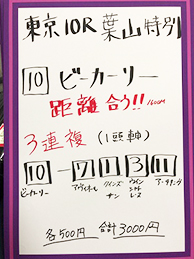 東京10R 葉山特別
10 ビーカーリー
距離合う!! 1600m
3連複 (1頭軸)
10-7 1 3 11
ビーカーリー
クインズ
サン
各500円 合計3000円